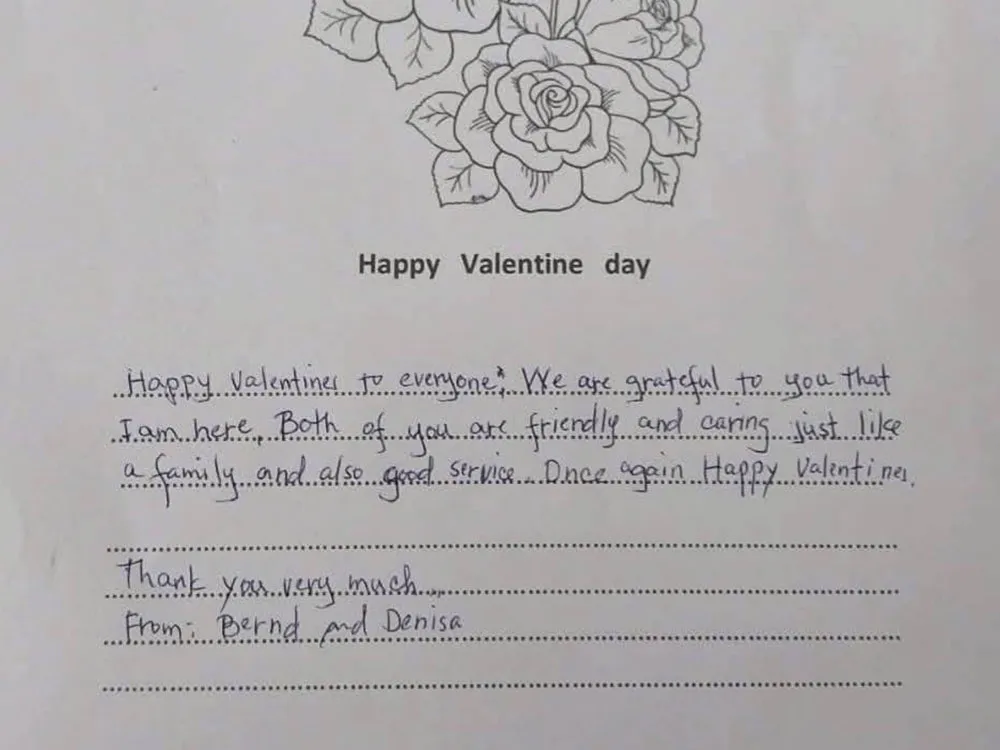 Happy Valentine day
Happy Valentines to everyone. We are grateful to you that
I am here. Both of you are friendly and caring just like
a family and also good service. Once again Happy Valentines.
Thank you very much...
From: Bernd and Denisa